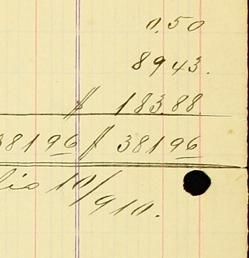 0.50
8943.
$ 183.88
38196 $ 38196
lio 10/910.